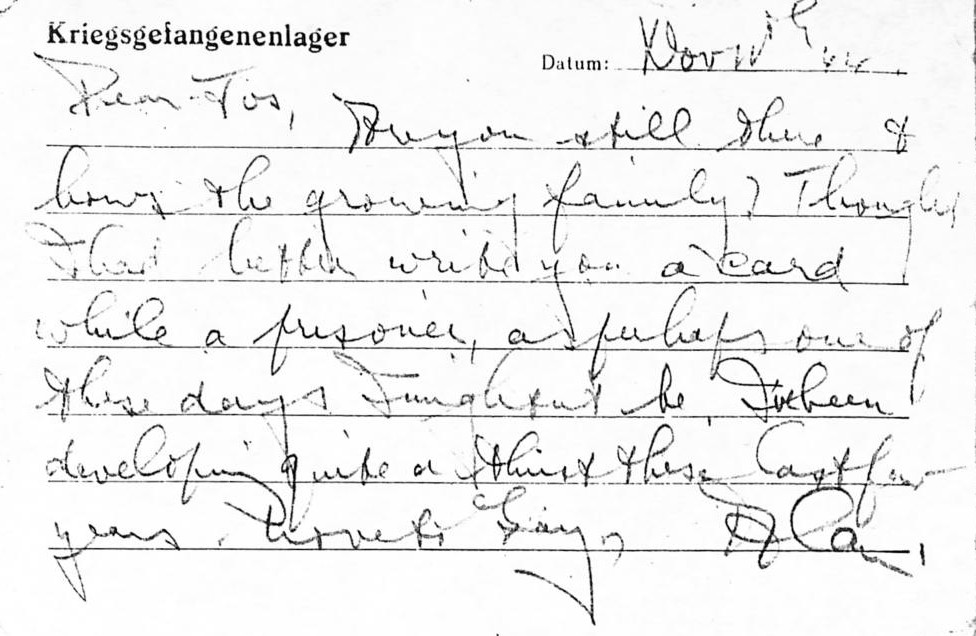 Kriegsgefangenenlager
Datum: Nov
Dear Jos,
Are you still there &
hows the growing family? Thought
I had better write you a card
while a prisoner, as perhaps one of
these days I might not be. I've been
developing quite a thirst these last few
years. Love to Gay, Alan.